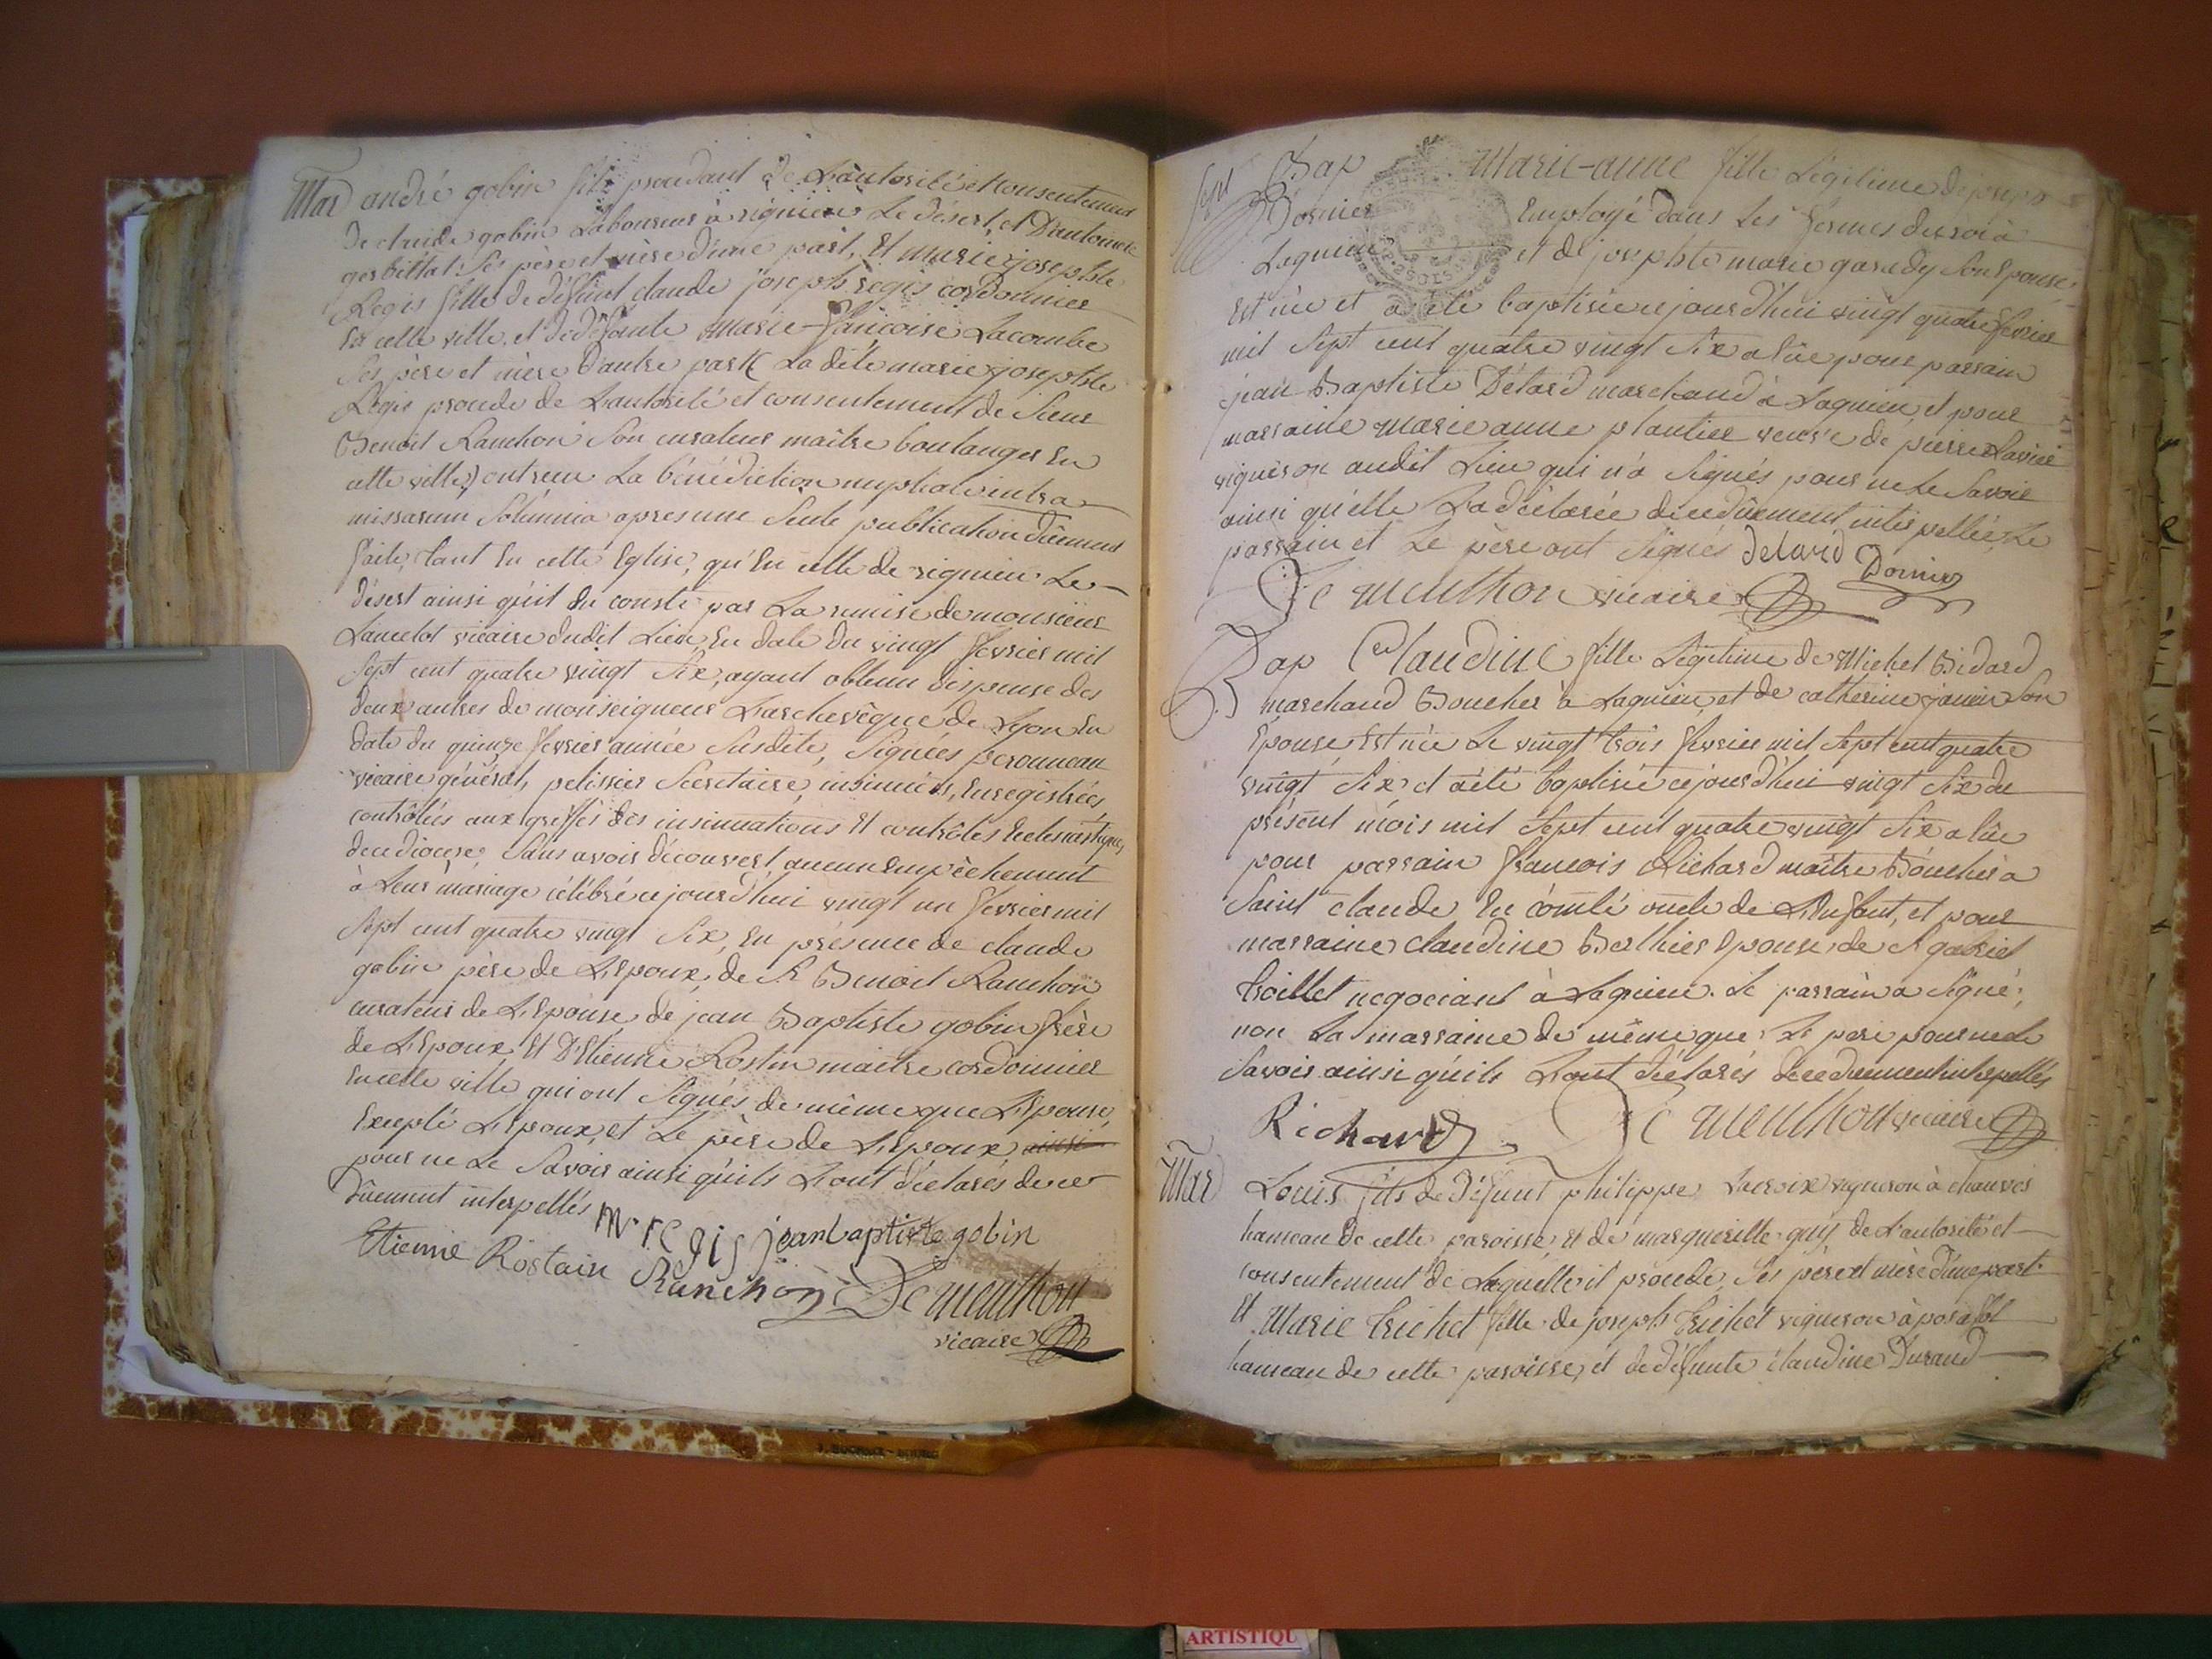 Mar andré gobin fils procedant de L'autorité et consentement
de claude gobin Laboureur à signieu Le désert, et D'antoinette
gerbillat Ses père et mère d'une part, Et marie josephte
Regis fille de défunt claude joseph regis cordonnier
En cette ville, et de défunte Marie-françoise Lacombe
Ses père et mère d'autre part (La dite marie josephte
Regis procede de L'autorité et consentement de Sieur
Benoit Ranchon Son curateur maître boulanger En
cette ville) ont recu La bénédiction nuptiale intra
missarum Solemnia apres une Seule publication dûement
faite, tant En cette Eglise, qu'En celle de signieu Le
désert ainsi qu'il En conste par La remise de monsieur
Lancelot vicaire dudit Lieu, En date du vingt fevrier mil
Sept cent quatre vingt Six, ayant obtenu dispense des
deux autres de monseigneur L'archevêque de Lyon En
date du quinze fevrier année Susdite, Signées peronneau
vicaire général, pelissier Secretaire, insinuées, Enregistrées,
contrôlées aux greffes des insinuations Et contrôles Ecclesiastiques
de ce diocese, Sans avoir découvert aucun Empêchement
à Leur mariage célébré cejourd'hui vingt un fevrier mil
Sept cent quatre vingt Six, En présence de claude
gobin père de L'Epoux, de Sr Benoit Ranchon
curateur de L'Epouse, de jean Baptiste gobin frère
de L'Epoux, Et D'Etienne Rostin maitre cordonnier
En cette ville qui ont Signés de même que L'Epouse,
Excepté L'Epoux, et Le père de L'Epoux, ainsi
pour ne Le Savoir ainsi qu'ils L'ont déclarés de ce
dûement interpellés
m. regis jean baptiste gobin
Etienne Rostain Ranchon De menthon
vicaire
Bap Marie-anne fille Légitime de joseph
Dornier Employé dans Les fermes du roi à
Lagnieu et de josephte marie garedy Son Epouse,
Est née et a été baptisée cejourd'hui vingt quatre fevrier
mil Sept cent quatre vingt Six a Eue pour parrain
jean-Baptiste Détard marchand à Lagnieu, et pour
marraine marie anne plantier veuve de pierre Ravier
vigneron audit Lieu qui n'a Signés pour ne Le Savoir
ainsi qu'elle L'a déclarée de ce dûement interpellée Le
parrain et Le père ont Signés Detard Dornier
De menthon vicaire
Bap Claudine fille Légitime de Michel Bidard
marchand Boucher à Lagnieu, et de catherine janin Son
Epouse, Est née Le vingt trois fevrier mil Sept cent quatre
vingt Six et a été baptisée cejourd'hui vingt Six du
présent mois mil Sept cent quatre vingt Six a Eue
pour parrain francois Richard maître Boucher à
Saint claude En comté oncle de L'Enfant, et pour
marraine claudine Berthier Epouse de Sr gabriel
troillet negociant à Lagnieu. Le parrain a Signé,
non La marraine de même que Le père pour ne le
Savoir ainsi qu'ils L'ont déclarés de ce dûement interpellés
Richard De menthon vicaire
Mar Louis fils de défunt philippe Lacroix vigneron à chauves
hameau de cette paroisse, et de marguerite guy de L'autorité et
consentement de Laquelle il procede, Ses père et mère d'une part.
Et Marie trichet fille de joseph trichet vigneron à posafol
hameau de cette paroisse, et de défunte claudine Durand
ARTISTIQU